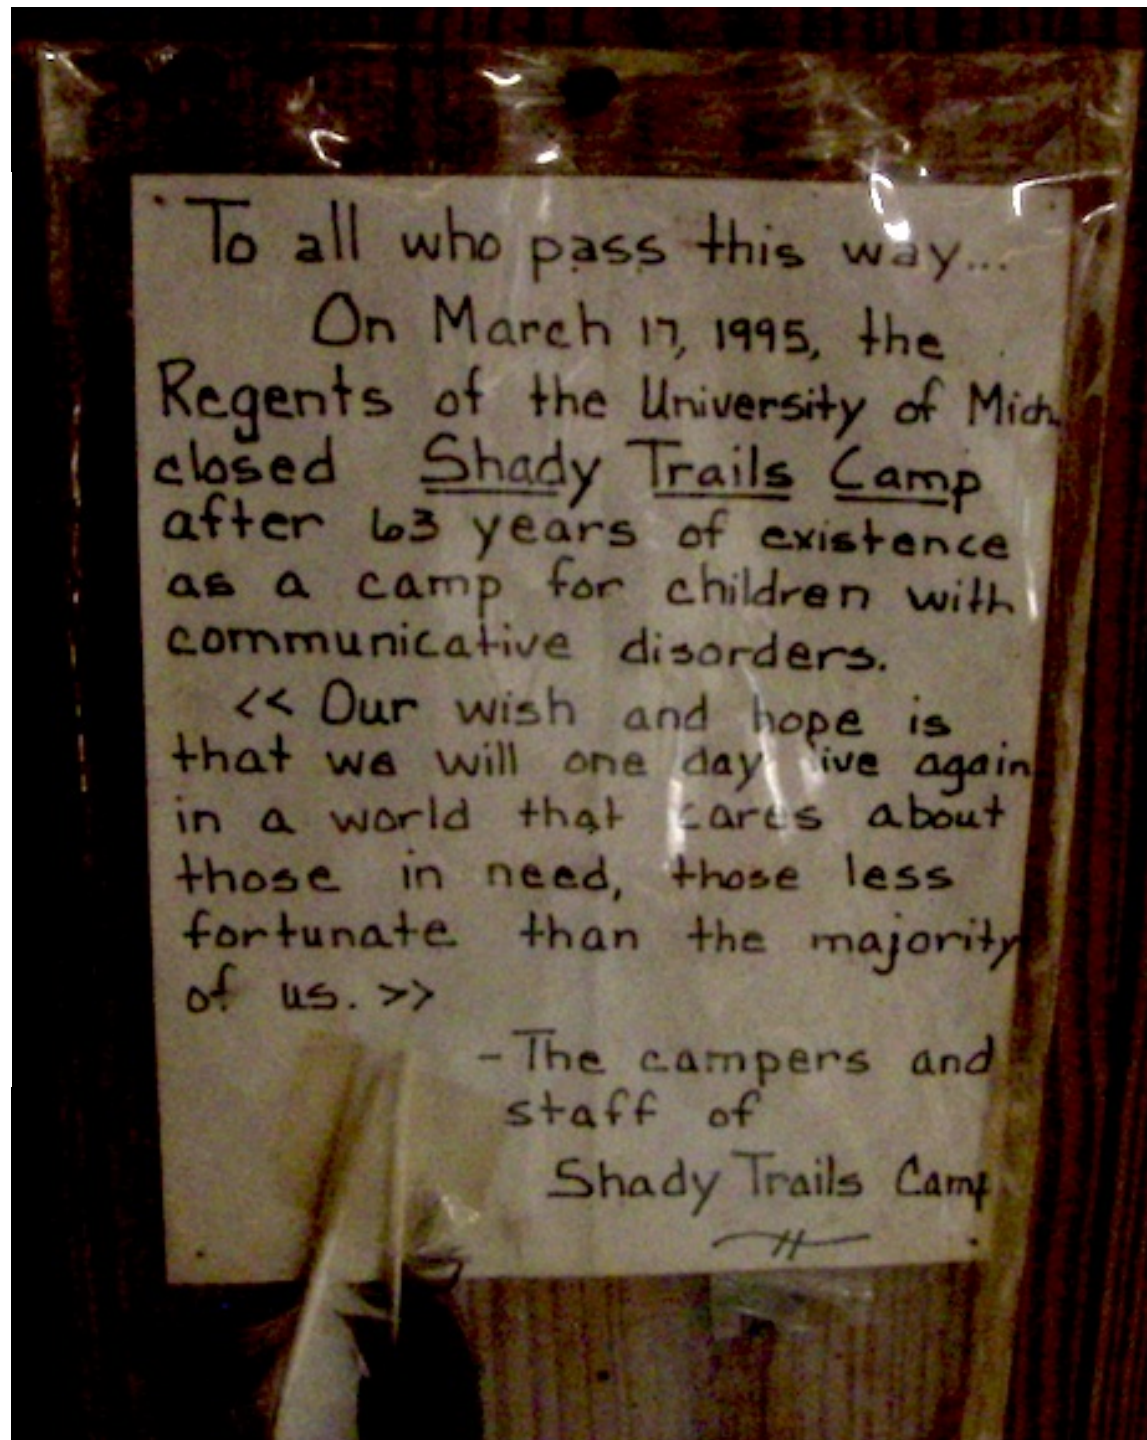 To all who pass this way...
On March 17, 1995, the
Regents of the University of Mich.
closed Shady Trails Camp
after 63 years of existence
as a camp for children with
communicative disorders.
<< Our wish and hope is
that we will one day live again
in a world that cares about
those in need, those less
fortunate than the majority
of us. >>
- The campers and
staff of
Shady Trails Camp